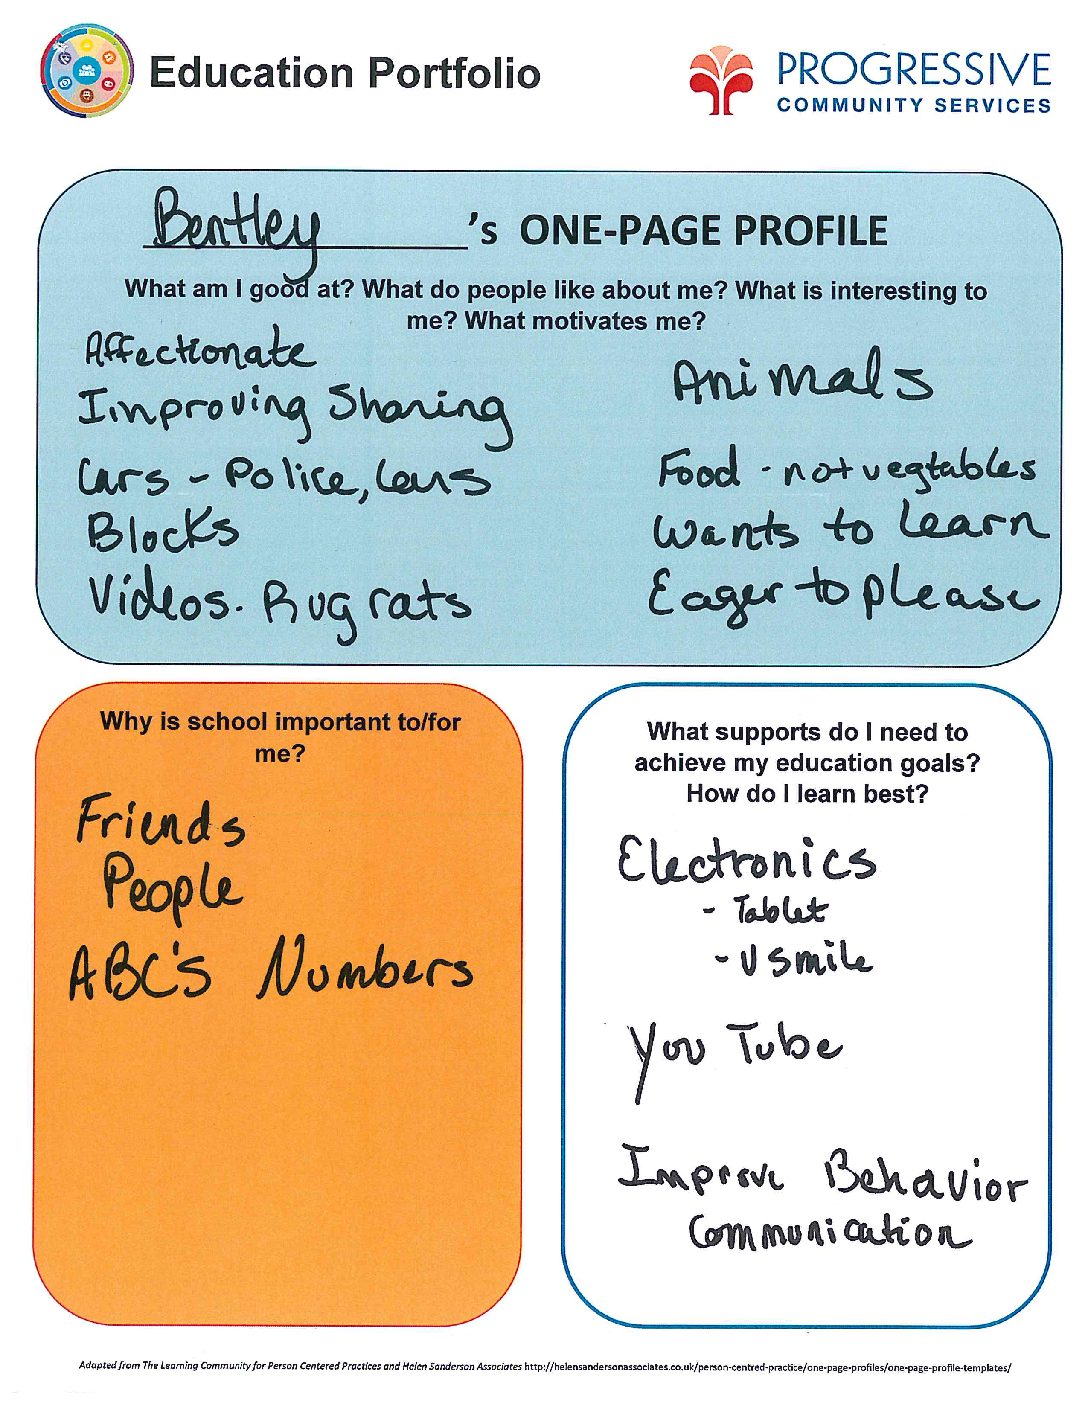 Education Portfolio
PROGRESSIVE
COMMUNITY SERVICES
Bentley 's ONE-PAGE PROFILE
What am I good at? What do people like about me? What is interesting to
me? What motivates me?
Affectionate
Improving Sharing
Cars - Police,
Blocks
Videos. Rugrats
Animals
Food - not vegtables
Wants to learn
Eager to please
Why is school important to/for
me?
Friends
People
ABC's Numbers
What supports do I need to
achieve my education goals?
How do I learn best?
Electronics
- Tablet
- V Smile
You Tube
Improve Behavior
Communication
Adapted from The Learning Community for Person Centered Practices and Helen Sanderson Associates http://helensandersonassociates.co.uk/person-centred-practice/one-page-profiles/one-page-profile-templates/